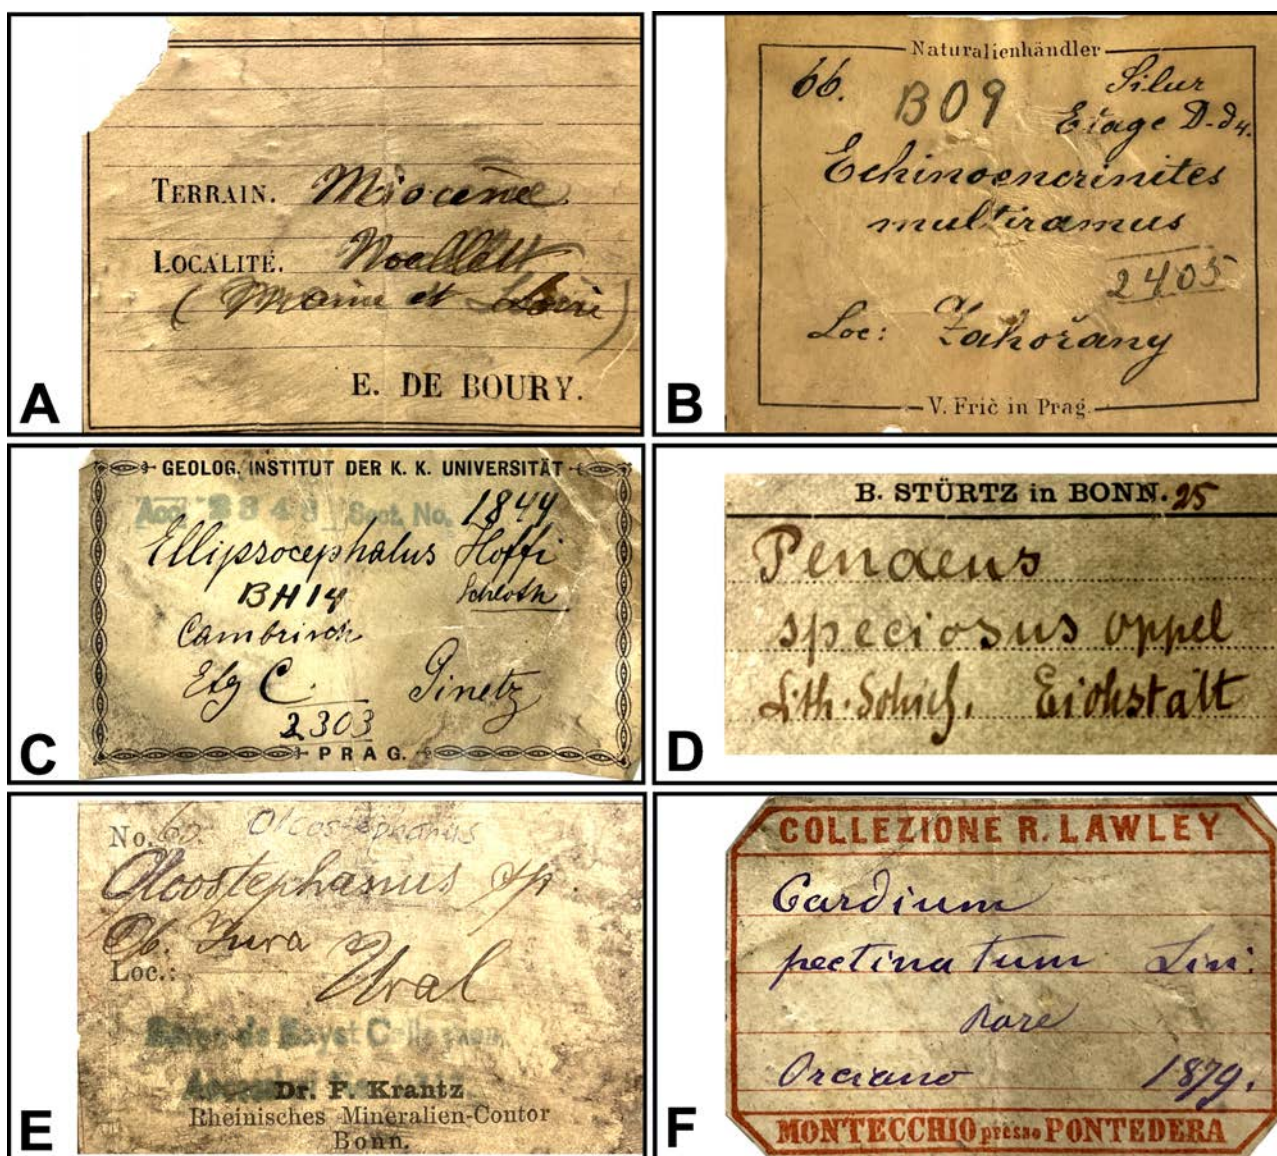 A
TERRAIN. Miocène
LOCALITÉ. Noellett
(Maine et Loire)
E. DE BOURY.
B
Naturalienhändler
66. B09 Silur
Etage D-d4.
Echinoencrinites
multiramus
2405
Loc: Zahořany
V. Frič in Prag.
C
GEOLOG. INSTITUT DER K. K. UNIVERSITÄT
Acc. 2343 Sect. No. 1844
Ellipsocephalus Hoffi
BH14 Schloth
Cambrisch
Etg C. Ginetz
2303
PRAG.
D
B. STÜRTZ in BONN. 25
Penaeus
speciosus oppel
Lith. Schief. Eichstätt
E
No. 60. Olcostephanus
Olcostephanus sp.
Ob. Jura
Loc.: Ural
Baron de Bayet Collection
Dr. F. Krantz
Rheinisches Mineralien-Contor
Bonn.
F
COLLEZIONE R. LAWLEY
Cardium
pectinatum Lin:
Rare
Orciano 1879.
MONTECCHIO presso PONTEDERA